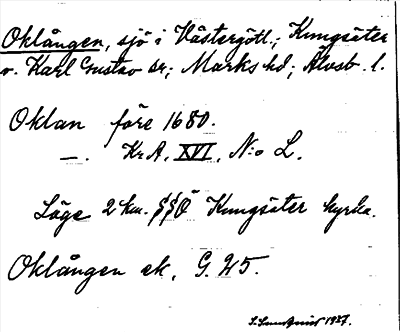 Oklången, sjö i Västergötl.; Kungsäter
v. Karl Gustav sn; Marks hd; Älvsb. l.
Oklan före 1680.
—. Kr A, XVI, N:o L.
Läge 2 km. §§Ö Kungsäter kyrka.
Oklången ek, G. 25.
1927.